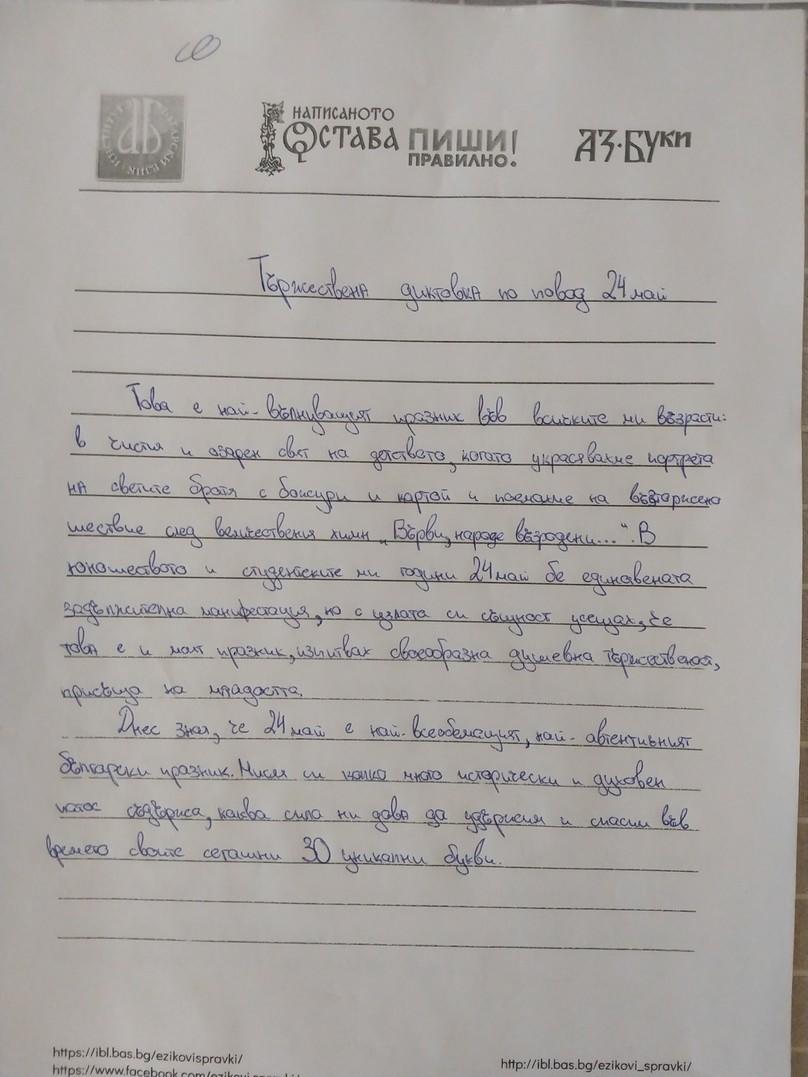 НАПИСАНОТО
ОСТАВА ПИШИ
ПРАВИЛНО!
АЗ·БУКИ
Тържествена диктовка по повод 24 май
Това е най-вълнуващият празник във всичките ми възрасти:
в чистия и озарен свят на детството, когато украсявахме портрета
на светите братя с божури и картой и поехахме на
шествие след величествения химн „Върви, народе възродени...“. В
юношеството и студентските ми години 24 май бе единствената
задължителна манифестация, но с цялата си същност усещах, че
това е и моят празник, изпитвах своеобразна душевна тържественост,
присъща на младостта.
Днес зная, че 24 май е най-всеобемащият, най-автентичният
български празник. Мисля си колко много исторически и духовен
патос съдържа, каква сила ни дава да удържим и спасим във
времето своите сегашни 30 уникални букви.
https://ibl.bas.bg/ezikovispravki/
http://ibl.bas.bg/ezikovi_spravki/